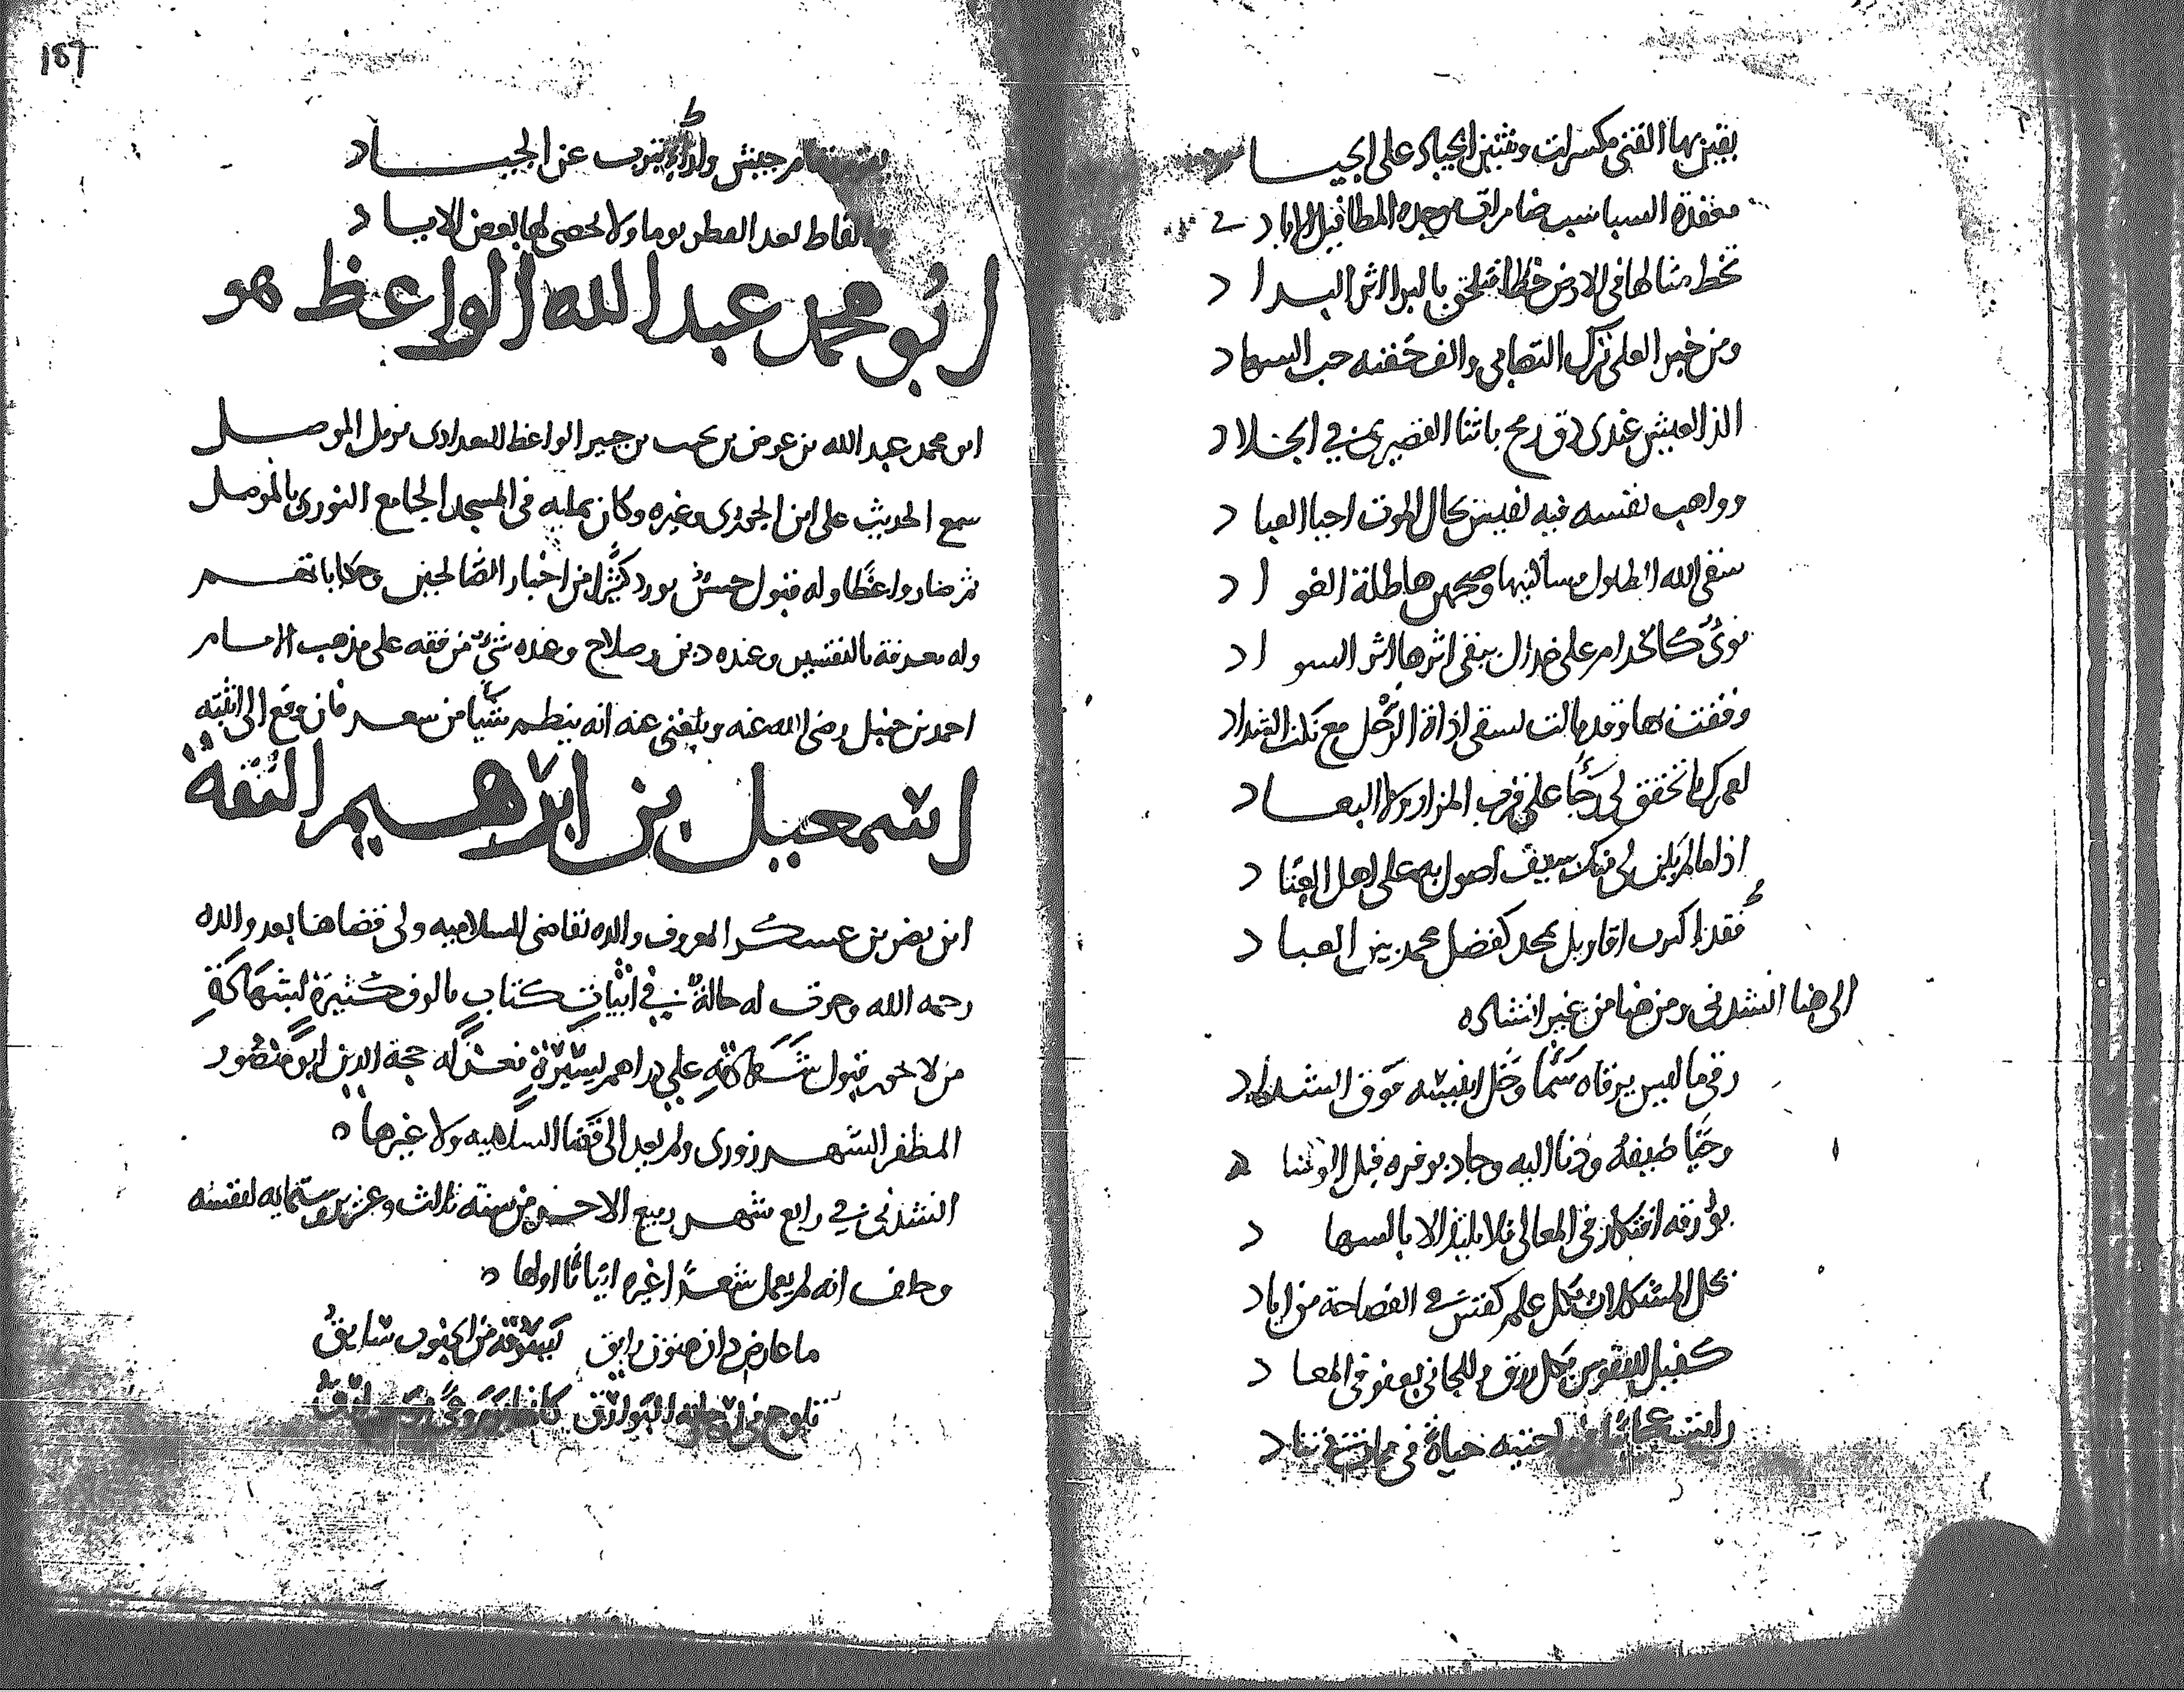 بقين بها القنى مكسرات وثنين الجياد على الجيا
معقدة السباسب ضامرات موجدة المطا قبل الاياد
تخط مثالها في الارض خطا فتلحق بالبرا اثر البدا د
ومن خبر العلى ترك التصابي والف جفنه حب السها د
الذ العيش عندي دق رمح باثنا القصيرى في الجلا د
وواهب نفسه فيه نفيس كال الموت احيا العبا د
سقى الله الطلول مسائليها وصحبهن هاطلة الغو ا د
نوى كالخدام على خدال يبقى اثرها اثر السو ا د
وقفت بها وقد مالت لسقى اذاة الرحل مع تلك الشداد
لعمرك ما تحقق لي رجا على قرب المزار ولا البعــاد
اذا ما لم يكن لي منك سيف اصول به على اهل العنا د
فقد اكدت اقاويل بمجد كفضل محمد بين العبا د
الى هنا انشدني ومن هنا من غير انشاده
رقى ما ليس يرقاه سما وخل لنفسه فوق الشداد
وحيا ضيفه ودنا اليه وجاد بوفره قبل الو
يؤرقه افتكار في المعالي فلا يلتذ الا بالسها د
تحل المشكلات بكل علم كقس في الفصاحة من اياد
كفيل للنفوس بكل رزق وللجاني بعفو في المعا د
رايت حياة في ممات في تناد
157
جيش واراء تنوب عن الجيــاد
القاط بعد العطر يوما ولا تحصى لها بعض الاياد
ابو محمد عبد الله الواعظ هو
ابو محمد عبد الله بن عوض بن نجيب بن جبير الواعظ البغدادى نزيل الموصل
سمع الحديث على ابن الجوزى وغيره وكان يمليه في المسجد الجامع النوري بالموصل
ثم صار واعظا وله قبول حسن يورد كثيرا من اخبار الصالحين وحكاياتهم
وله معرفة بالتفسير وعنده دين وصلاح وعنده شيء من فقه على مذهب الامام
احمد بن حنبل رضي الله عنه وبلغني عنه انه ينظم شيا من شعر فان وقع الي اثبته
اسمعيل بن ابرهيم الثقة
ابن نصر بن عسكر المعروف والده بقاضي السلاميه ولي قضاها بعد والده
رحمه الله وجرت له حالة في اثبات كتاب بالوف كثيرة بشهادة
من لا يجوز قبول شهادته على دراهم يسيرة فعزله حجة الدين ابو منصور
المظفر الشهرزورى ولم يعد الى قضا السلاميه ولا غيرها
انشدني في رابع شهر ربيع الاخر من سنة ثلاث وعشرين وستمايه لنفسه
وحلف انه لم يعمل شعرا غيره ابياتا اولها
ما عارض دان هتون رايق يسوقه من الجنوب سايق
تلوح في ارجايه البوارق